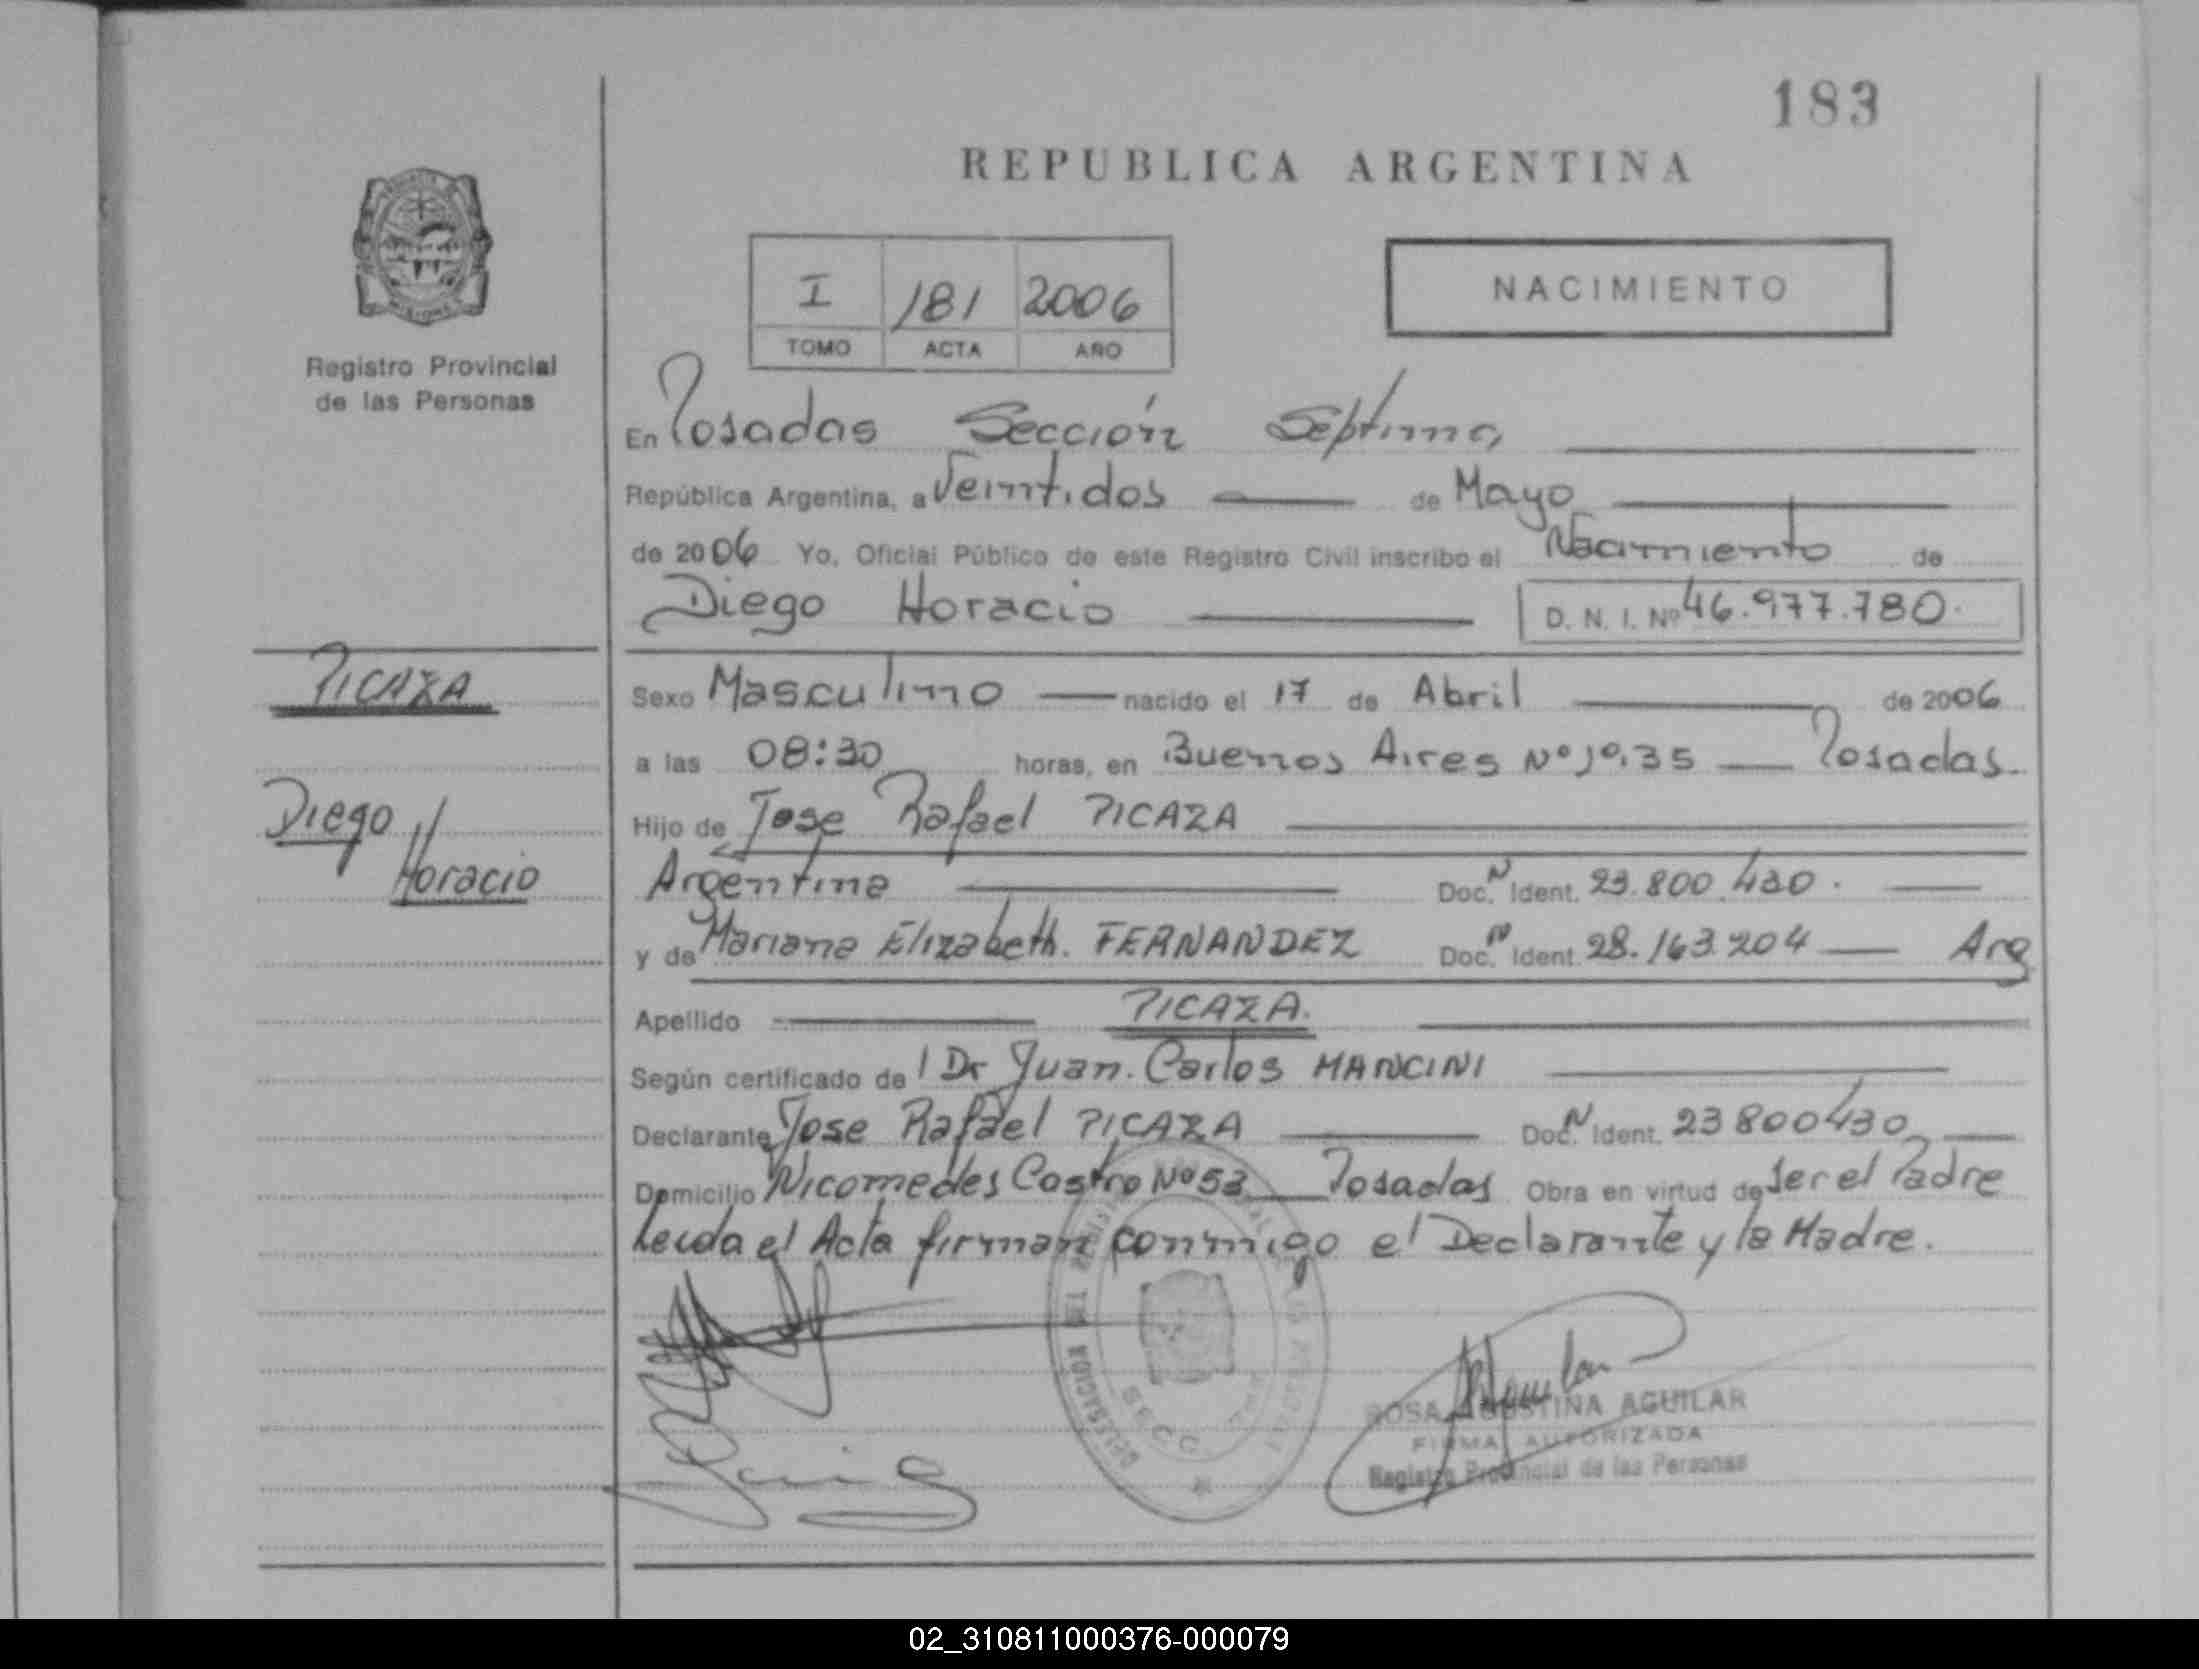 183
REPUBLICA ARGENTINA
I 181 2006
TOMO ACTA AÑO
NACIMIENTO
Registro Provincial
de las Personas
En Posadas Sección Séptima
República Argentina, a Veintidos de Mayo
de 2006 Yo, Oficial Público de este Registro Civil inscribo el Nacimiento de
Diego Horacio D. N. I. Nº 46.977.780.
PICAZA
Sexo Masculino nacido el 17 de Abril de 2006
a las 08:30 horas, en Buenos Aires Nº Posadas.
Diego
Horacio
Hijo de Jose Rafael PICAZA
Argentina Doc. N Ident. 23.800.430.
y de Mariana Elizabeth. FERNANDEZ Doc. N Ident. 28.163.204 Arg
Apellido PICAZA.
Según certificado de l Dr Juan. Carlos MANCINI
Declarante Jose Rafael PICAZA Doc. N Ident. 23800430
Domicilio Nicomedes Castro Nº 53 Posadas Obra en virtud de ser el Padre
Leida el Acta firman conmigo el Declarante y la Madre.
SECC.
ROSA AGUSTINA AGUILAR
FIRMA AUTORIZADA
Registro Provincial de las Personas
02_310811000376-000079